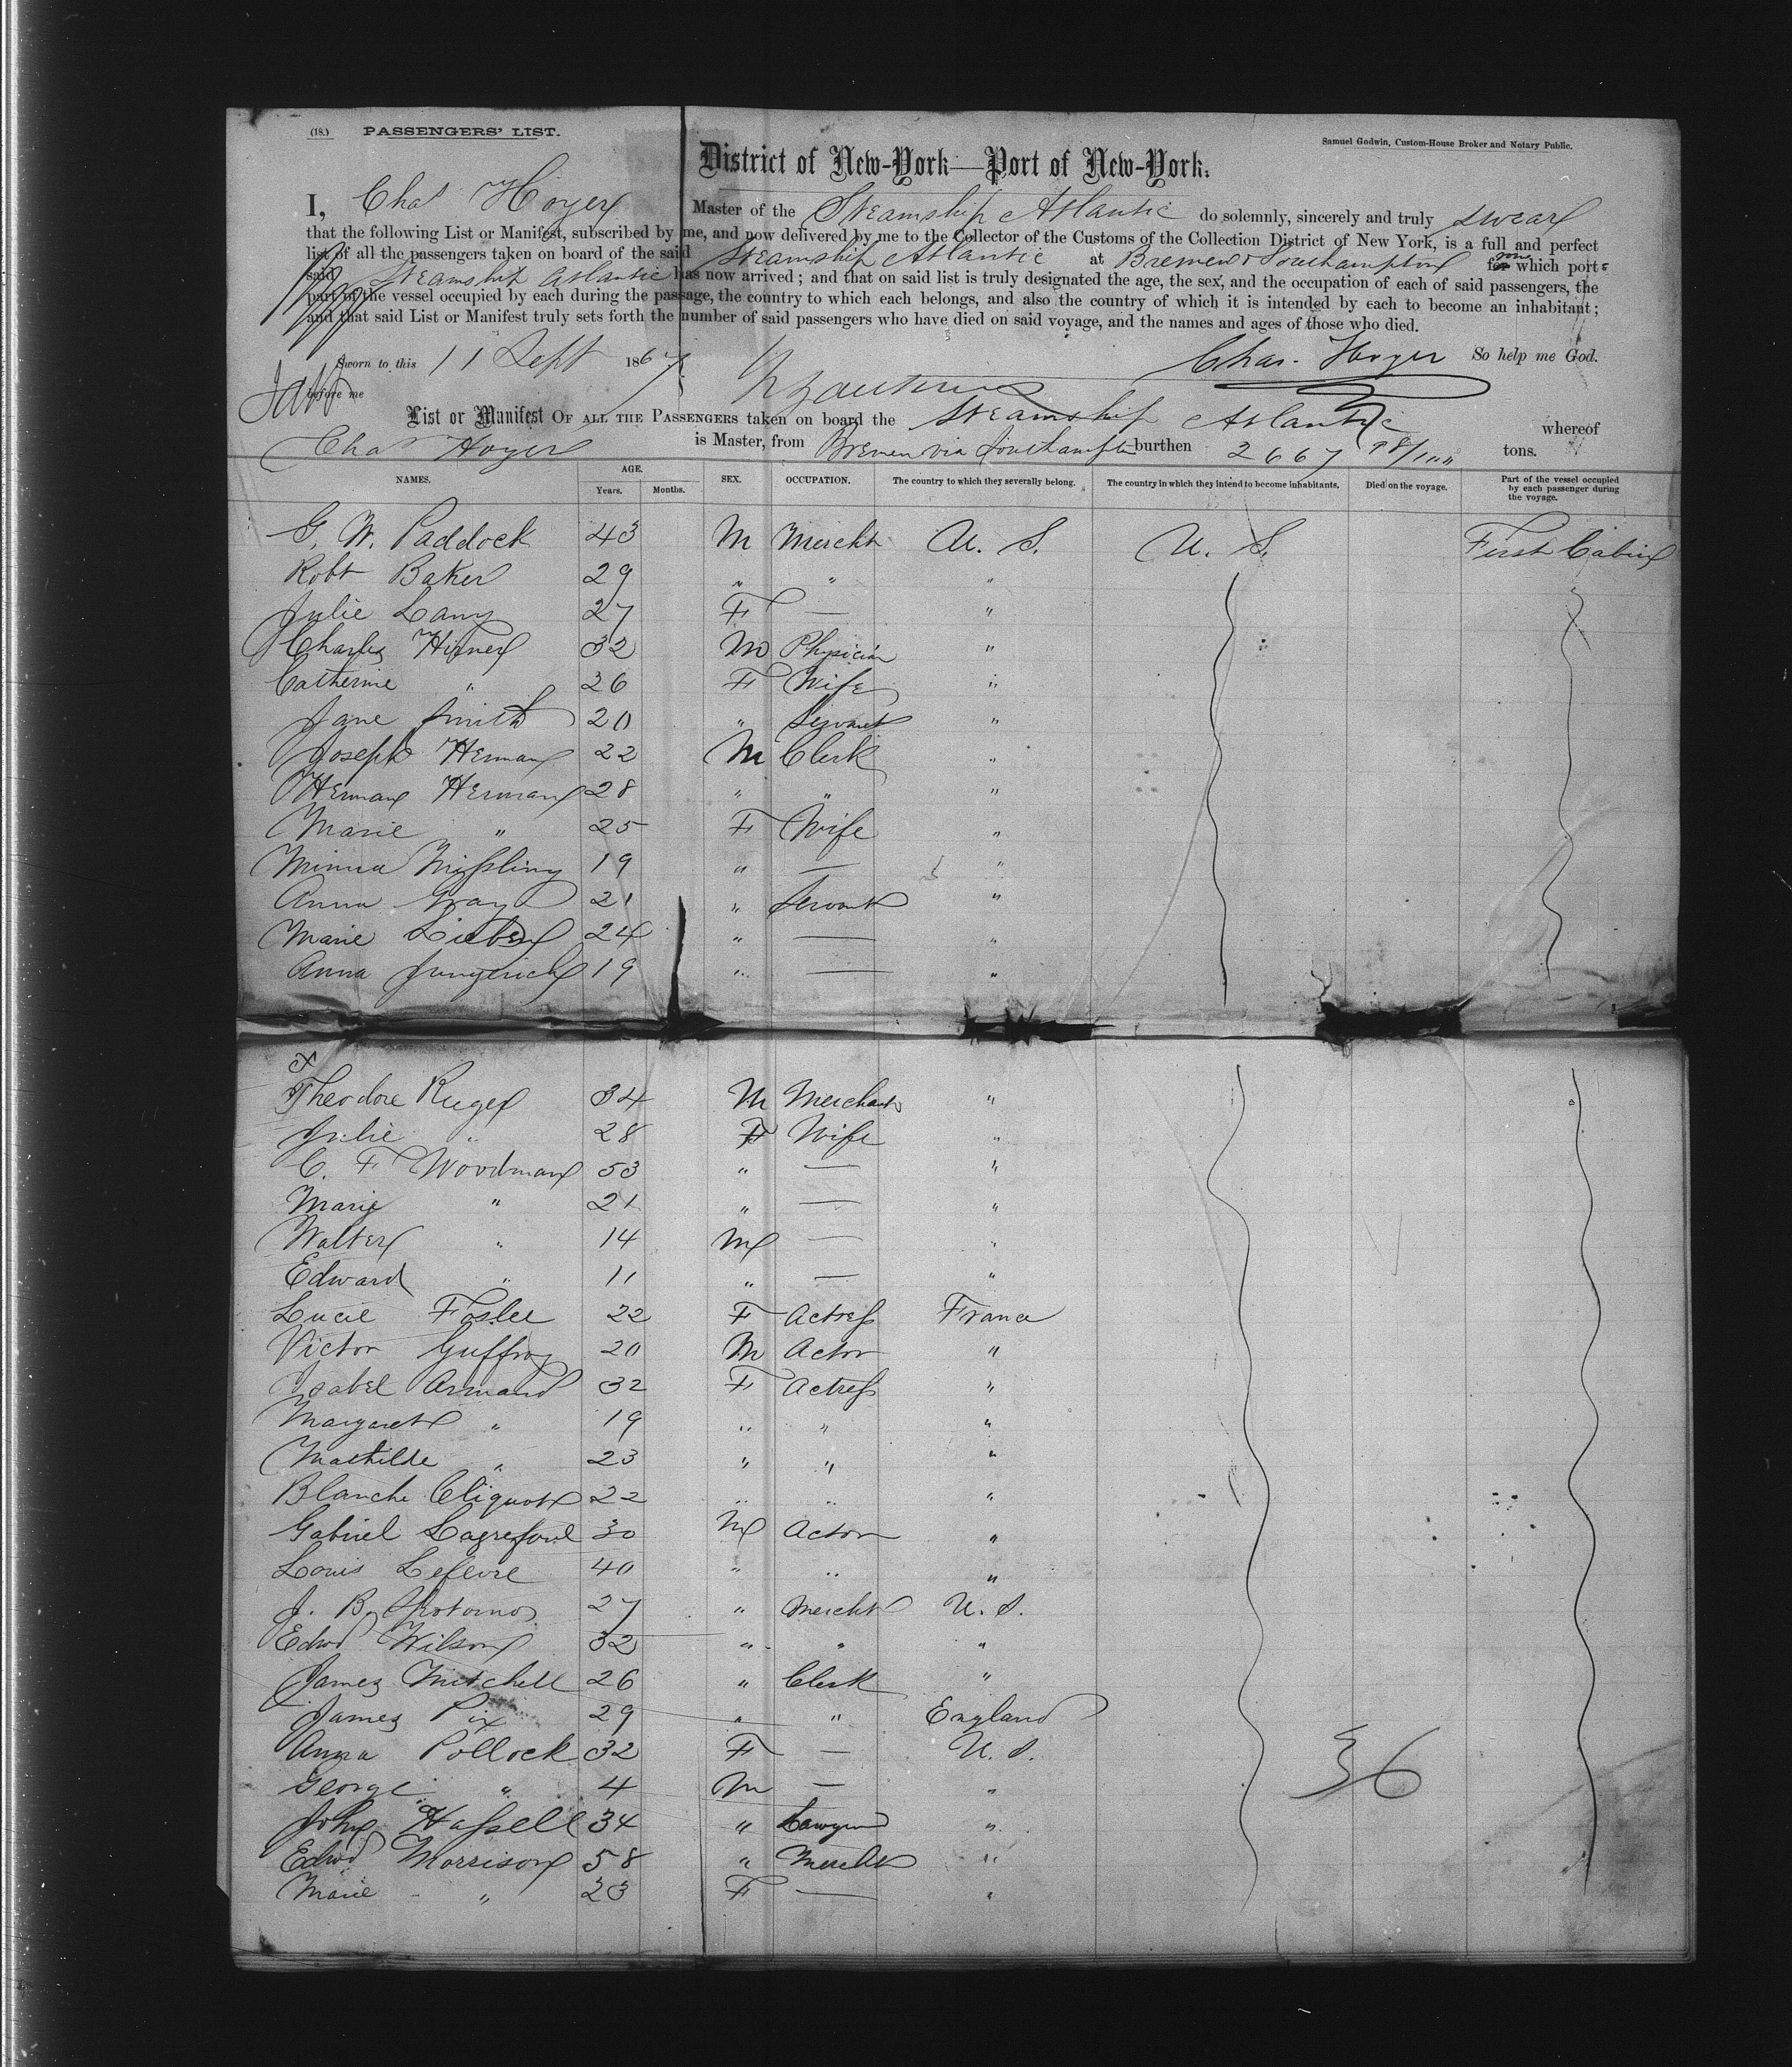 (18.) PASSENGERS' LIST.
Samuel Godwin, Custom-House Broker and Notary Public.
District of New-York—Port of New-York.
I, Chas Hoyer Master of the Steamship Atlantic do solemnly, sincerely and truly swear
that the following List or Manifest, subscribed by me, and now delivered by me to the Collector of the Customs of the Collection District of New York, is a full and perfect
list of all the passengers taken on board of the said Steamship Atlantic at Bremen & Southampton from which port
said Steamship Atlantic has now arrived; and that on said list is truly designated the age, the sex, and the occupation of each of said passengers, the
part of the vessel occupied by each during the passage, the country to which each belongs, and also the country of which it is intended by each to become an inhabitant;
and that said List or Manifest truly sets forth the number of said passengers who have died on said voyage, and the names and ages of those who died.
Sworn to this 11 Sept 1867 Chas. Hoyer So help me God.
before me
List or Manifest OF ALL THE PASSENGERS taken on board the Steamship Atlantic whereof
Chas Hoyer is Master, from Bremen via Southampton burthen 2667 98/100 tons.
NAMES. AGE. Years. Months. SEX. OCCUPATION. The country to which they severally belong. The country in which they intend to become inhabitants. Died on the voyage. Part of the vessel occupied by each passenger during the voyage.
G. W. Paddock 43 M Mercht U. S. U. S. First Cabin
Robt Baker 29 " " "
Julie Lang 27 F — "
Charles Hirner 32 M Physician "
Catherine " 26 F Wife "
Jane Smith 20 " Servant "
Joseph Herman 22 M Clerk "
Herman Herman 28 " " "
Marie " 25 F Wife "
Minna 19 " — "
Anna Gray 21 " Servant "
Marie Lieben 24 " — "
Anna Jungerich 19 " — "
Theodore Ruger 34 M Merchant "
Julie " 28 F Wife "
C. F Woodman 53 " — "
Marie " 21 " — "
Walter " 14 M — "
Edward " 11 " — "
Lucie 22 F Actress France
Victor Guffroy 20 M Actor "
Isabel Armand 32 F Actress "
Margaret " 19 " " "
Mathilde " 23 " " "
Blanche Cliquot 22 " " "
Gabriel 30 M Actor "
Louis Lefevre 40 " " "
J. B. 27 " Mercht U. S.
Edwd Wilson 32 " " "
James Mitchell 26 " Clerk "
James Pix 29 " " England
Anna Pollock 32 F — U. S.
George " 4 M — "
John Hassell 34 " Lawyer "
Edwd Morrison 58 " Mercht "
Marie " 23 F — "
36